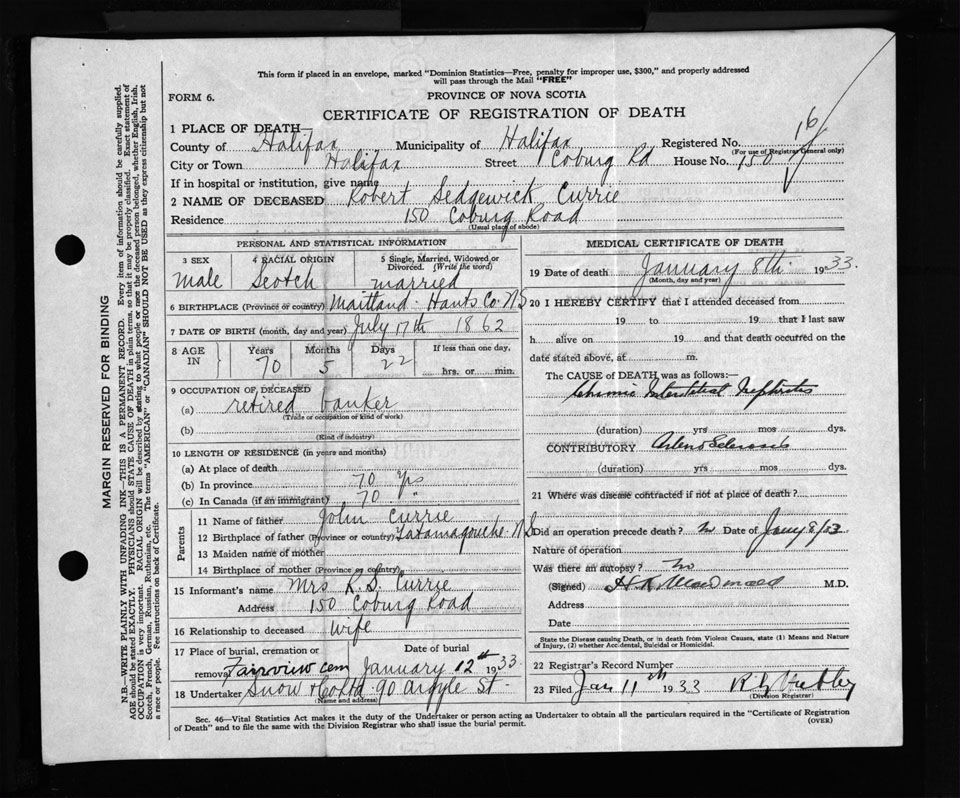 This form if placed in an envelope, marked "Dominion Statistics—Free, penalty for improper use, $300," and properly addressed
will pass through the Mail "FREE"
FORM 6.
PROVINCE OF NOVA SCOTIA
CERTIFICATE OF REGISTRATION OF DEATH
16
1 PLACE OF DEATH—
County of Halifax Municipality of Halifax Registered No.
(For use of Registrar General only)
City or Town Halifax Street Coburg Rd House No. 150
If in hospital or institution, give name
2 NAME OF DECEASED Robert Sedgewick Currie
Residence 150 Coburg Road
(Usual place of abode)
PERSONAL AND STATISTICAL INFORMATION
3 SEX 4 RACIAL ORIGIN 5 Single, Married, Widowed or
Divorced. (Write the word)
Male Scotch married
6 BIRTHPLACE (Province or country) Maitland Hants Co. N.S
7 DATE OF BIRTH (month, day and year) July 17th 1862
8 AGE IN Years Months Days If less than one day,
70 5 22 hrs. or min.
9 OCCUPATION OF DECEASED
(a) retired banker
(Trade or occupation or kind of work)
(b)
(Kind of industry)
10 LENGTH OF RESIDENCE (in years and months)
(a) At place of death
(b) In province 70 yrs
(c) In Canada (if an immigrant) 70 "
Parents
11 Name of father John Currie
12 Birthplace of father (Province or country) Tatamagouche N S
13 Maiden name of mother
14 Birthplace of mother (Province or country)
15 Informant's name Mrs R. S. Currie
Address 150 Coburg Road
16 Relationship to deceased Wife
17 Place of burial, cremation or Date of burial
removal Fairview cem January 12th 1933
18 Undertaker Snow & Co Ltd 90 Argyle St -
(Name and address)
MEDICAL CERTIFICATE OF DEATH
19 Date of death January 8th 1933.
(Month, day and year)
20 I HEREBY CERTIFY that I attended deceased from
19 to 19 that I last saw
h alive on 19 and that death occurred on the
date stated above, at m.
The CAUSE of DEATH was as follows:—
Chronic Interstitial Nephritis
(duration) yrs mos dys.
CONTRIBUTORY Arterio Sclerosis
(duration) yrs mos dys.
21 Where was disease contracted if not at place of death?
Did an operation precede death? no Date of Jany 8/33
Nature of operation
Was there an autopsy? no
(Signed) H.K. MacDonald M.D.
Address
Date
State the Disease causing Death, or in death from Violent Causes, state (1) Means and Nature
of Injury, (2) whether Accidental, Suicidal or Homicidal.
22 Registrar's Record Number
23 Filed Jan 11th 1933
(Division Registrar)
Sec. 46—Vital Statistics Act makes it the duty of the Undertaker or person acting as Undertaker to obtain all the particulars required in the "Certificate of Registration
of Death" and to file the same with the Division Registrar who shall issue the burial permit. (OVER)
MARGIN RESERVED FOR BINDING
N.B.—WRITE PLAINLY WITH UNFADING INK—THIS IS A PERMANENT RECORD. Every item of information should be carefully supplied.
AGE should be stated EXACTLY. PHYSICIANS should STATE CAUSE OF DEATH in plain terms, so that it may be properly classified. Exact statement of
OCCUPATION is very important. RACIAL ORIGIN will be described by stating to what people or race the deceased person belonged, whether English, Irish,
Scotch, French, German, Russian, Ruthenian, etc. The terms "AMERICAN" or "CANADIAN" SHOULD NOT BE USED as they express citizenship but not
a race or people. See instructions on back of Certificate.